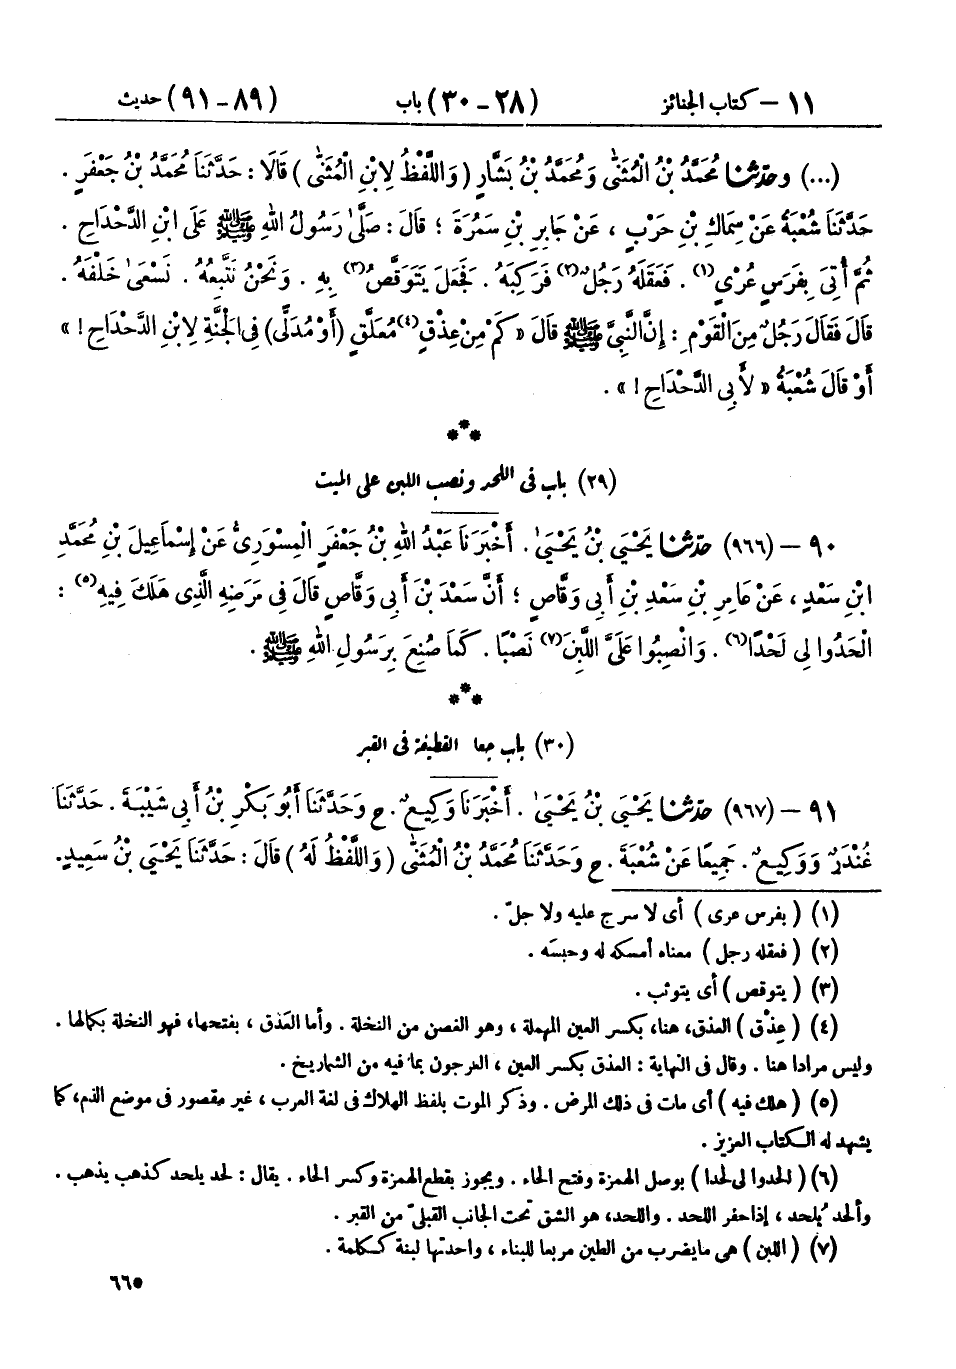 ١١ – كتاب الجنائز (٢٨ – ٣٠) باب (٨٩ – ٩١) حديث
(...) وحَدَّثَنَا مُحَمَّدُ بْنُ الْمُثَنَّى وَمُحَمَّدُ بْنُ بَشَّارٍ ( وَاللَّفْظُ لِابْنِ الْمُثَنَّى ) قَالَا : حَدَّثَنَا مُحَمَّدُ بْنُ جَعْفَرٍ .
حَدَّثَنَا شُعْبَةُ عَنْ سِمَاكِ بْنِ حَرْبٍ ، عَنْ جَابِرِ بْنِ سَمُرَةَ ؛ قَالَ : صَلَّى رَسُولُ اللهِ ﷺ عَلَى ابْنِ الدَّحْدَاحِ .
ثُمَّ أُتِىَ بِفَرَسٍ عُرْىٍ(١) . فَعَقَلَهُ رَجُلٌ(٢) فَرَكِبَهُ . فَجَعَلَ يَتَوَقَّصُ(٣) بِهِ . وَنَحْنُ نَتَّبِعُهُ . نَسْعَى خَلْفَهُ .
قَالَ فَقَالَ رَجُلٌ مِنَ الْقَوْمِ : إِنَّ النَّبِىَّ ﷺ قَالَ « كَمْ مِنْ عِذْقٍ(٤) مُعَلَّقٍ (أَوْ مُدَلًّى) فِى الْجَنَّةِ لِابْنِ الدَّحْدَاحِ ! »
أَوْ قَالَ شُعْبَةُ « لِأَبِى الدَّحْدَاحِ ! » .
***
(٢٩) باب فى اللحد ونصب اللبن على الميت
٩٠ – (٩٦٦) حَدَّثَنَا يَحْيَى بْنُ يَحْيَى . أَخْبَرَنَا عَبْدُ اللهِ بْنُ جَعْفَرٍ الْمِسْوَرِىُّ عَنْ إِسْمَاعِيلَ بْنِ مُحَمَّدِ
ابْنِ سَعْدٍ ، عَنْ عَامِرِ بْنِ سَعْدِ بْنِ أَبِى وَقَّاصٍ ؛ أَنَّ سَعْدَ بْنَ أَبِى وَقَّاصٍ قَالَ فِى مَرَضِهِ الَّذِى هَلَكَ فِيهِ(٥) :
الْحَدُوا لِى لَحْدًا(٦) . وَانْصِبُوا عَلَىَّ اللَّبِنَ(٧) نَصْبًا . كَمَا صُنِعَ بِرَسُولِ اللهِ ﷺ .
***
(٣٠) باب جعل القطيفة فى القبر
٩١ – (٩٦٧) حَدَّثَنَا يَحْيَى بْنُ يَحْيَى . أَخْبَرَنَا وَكِيعٌ . ح وَحَدَّثَنَا أَبُو بَكْرِ بْنُ أَبِى شَيْبَةَ . حَدَّثَنَا
غُنْدَرٌ وَوَكِيعٌ . جَمِيعًا عَنْ شُعْبَةَ . ح وَحَدَّثَنَا مُحَمَّدُ بْنُ الْمُثَنَّى ( وَاللَّفْظُ لَهُ ) قَالَ : حَدَّثَنَا يَحْيَى بْنُ سَعِيدٍ .
(١) ( بفرس عرى ) أى لا سرج عليه ولا جلّ .
(٢) ( فعقله رجل ) معناه أمسكه له وحبسَه .
(٣) ( يتوقص ) أى يتوثب .
(٤) ( عِذْق ) العذق، هنا، بكسر العين المهملة ، وهو الغصن من النخلة . وأما العَذق ، بفتحها، فهو النخلة بكمالها .
وليس مرادا هنا . وقال فى النهاية : العذق بكسر العين ، العرجون بما فيه من الشماريخ .
(٥) ( هلك فيه ) أى مات فى ذلك المرض . وذكر الموت بلفظ الهلاك فى لغة العرب ، غير مقصور فى موضع الذم، كما
يشهد له الكتاب العزيز .
(٦) ( الحدوا لى لحدا ) بوصل الهمزة وفتح الحاء . ويجوز بقطع الهمزة وكسر الحاء . يقال : لحد يلحد كذهب يذهب .
وألحد يُلحد ، إذا حفر اللحد . واللحد، هو الشق تحت الجانب القبلىّ من القبر .
(٧) ( اللبن ) هى مايضرب من الطين مربعا للبناء ، واحدتها لبنة ككلمة .
٦٦٥